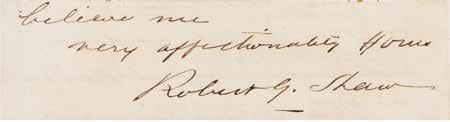 believe me
very affectionately Yours
Robert G. Shaw